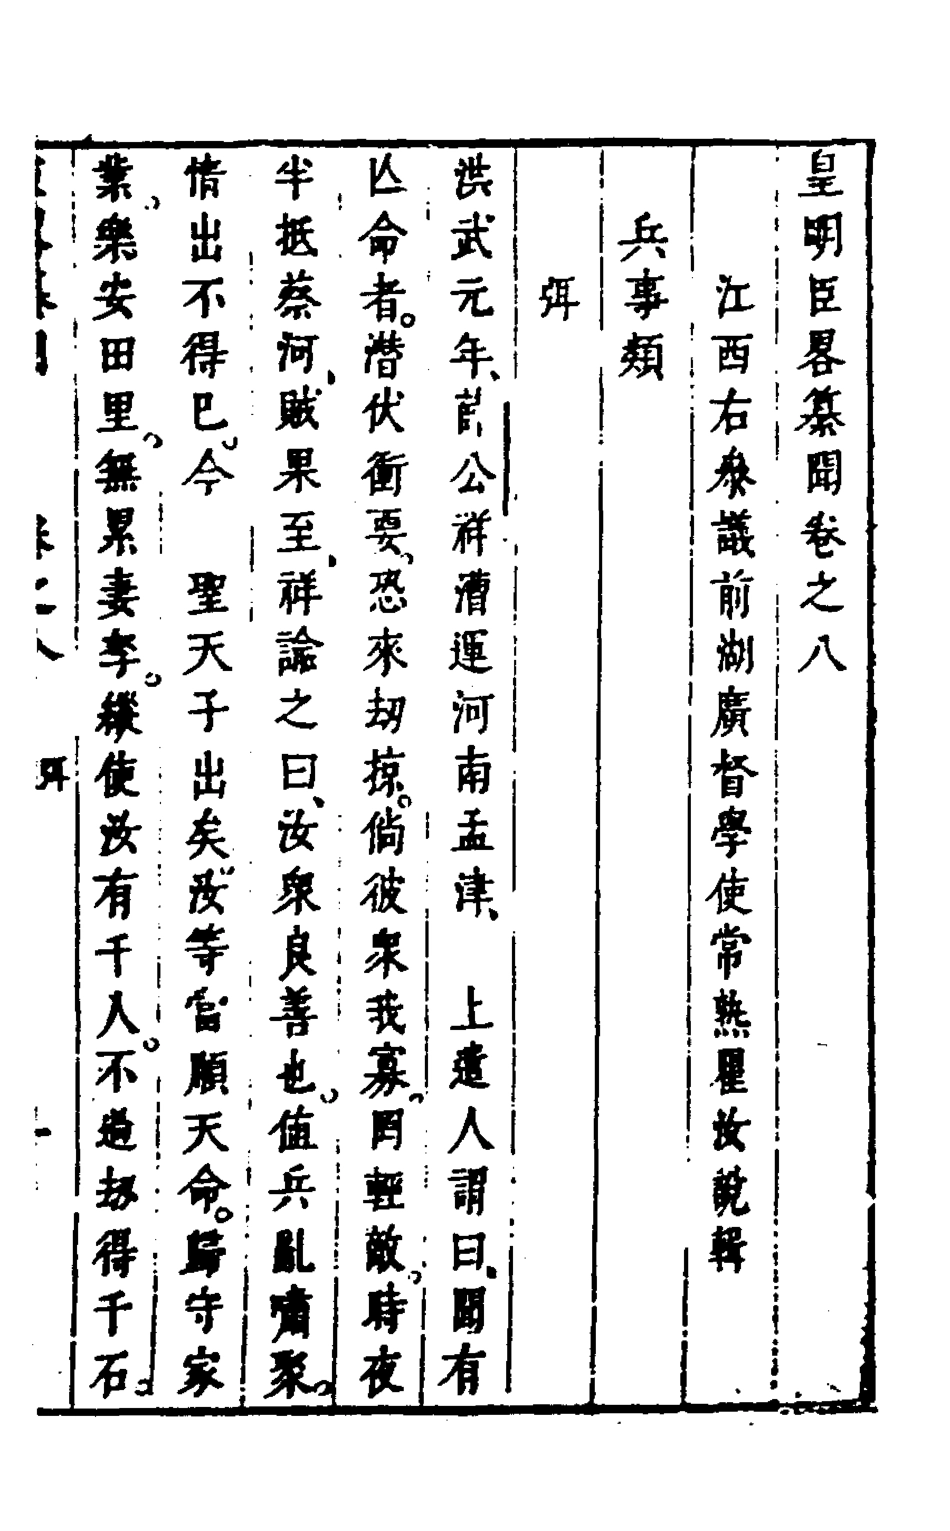 皇明臣畧纂聞卷之八
江西右叅議前湖廣督學使常熟瞿汝說輯
兵事類
弭
洪武元年公祥漕運河南孟津　上遣人謂曰聞有
亾命者潛伏衝要恐來劫掠倘彼衆我寡罔輕敵時夜
半抵蔡河賊果至祥諭之曰汝衆良善也值兵亂嘯聚
情出不得巳今　聖天子出矣汝等當順天命歸守家
業樂安田里無累妻孥縱使汝有千人不過劫得千石
卷之八　弭　一